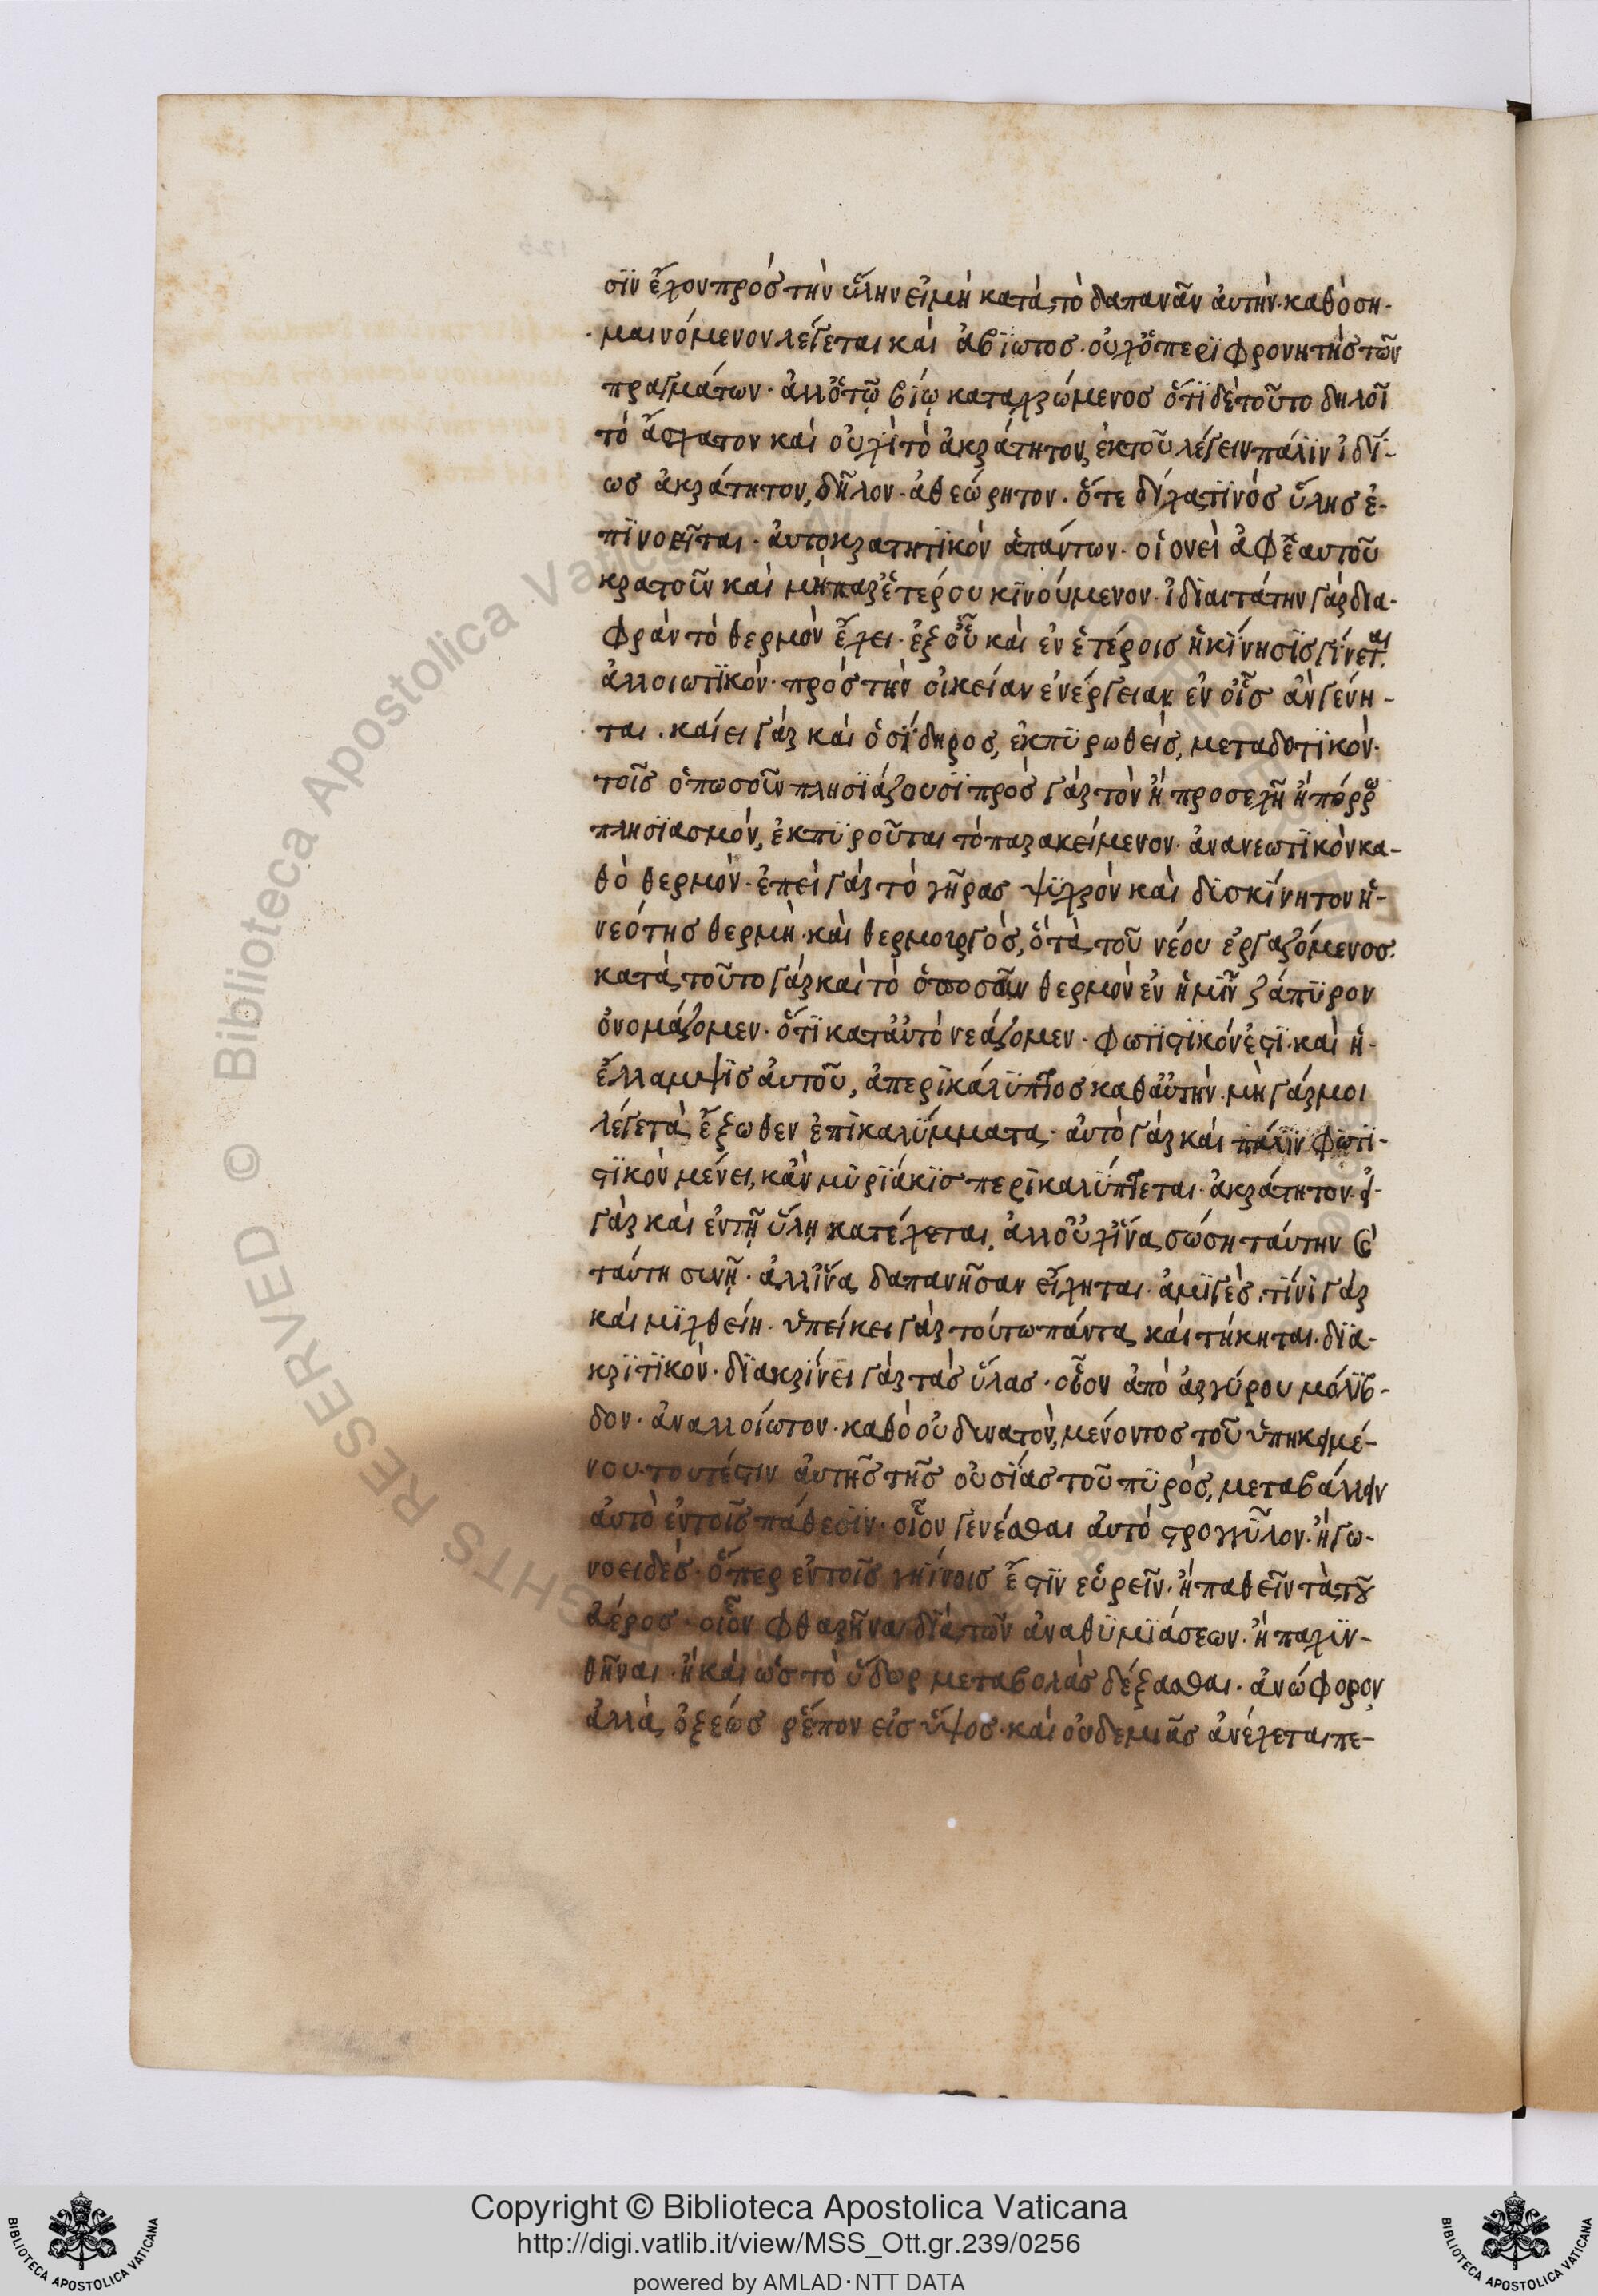 σϊν ἔχον πρὸς τὴν ὕλην εἰμὴ κατὰ τὸ δαπανᾶν ἀυτήν· καθὸ ση-
μαινόμενον λέγεται καὶ ἀβϊωτοσ· οὐχ ὁ περϊφρονητὴς τῶν
πραγμάτων· ἀλλ' ὁ τῶ βίω καταχρώμενος ὅτϊ δὲ τοῦτο δηλοῖ
τὸ ἄσχατον καὶ οὐχὶ τὸ ἀκράτητον, ἐκ τοῦ λέγειν πάλϊν ἰδϊ-
ως ἀκράτητον, δῆλον· ἀθεώρητον· ὅτε δίχα τϊνὸς ὕλης ἐ-
πϊνοεῖται· ἀυτοκρατητϊκὸν ἁπάντων· οἱονεὶ ἀφ' ἑαυτοῦ
κρατοῦν καὶ μὴ παρ' ἑτέρου κϊνούμενον· ἰδϊαιτάτην γὰρ δϊα-
φρὰν τὸ θερμὸν ἔχει· ἐξ οὗ καὶ ἐν ἑτέροις ἡ κίνησϊς γίνεται
ἀλλοιωτϊκόν· πρὸς τὴν οἰκείαν ἐνέργειαν ἐν οἷς ἀν γένη-
ται· καίει γὰρ καὶ ὁ σίδηρος, ἐκπϋρωθείς, μεταδοτϊκόν·
τοῖς ὁπωσοῦν πλησϊάζουσϊ πρὸς γὰρ τὸν ἢ προσεχῆ ἢ πόρρω
πλησϊασμόν, ἐκπϋροῦται τὸ παρακείμενον· ἀνανεωτϊκὸν κα-
θὸ θερμόν· ἐπεὶ γὰρ τὸ γῆρας ψϋχρὸν καὶ δϋσκίνητον ἡ-
νεότης θερμὴ· καὶ θερμουργὸς, ὁ τὰ τοῦ νέου ἐργαζόμενος·
κατὰ τοῦτο γὰρ καὶ τὸ ὁποσοῦν θερμὸν ἐν ἡμῖν ζάπϋρον
ὀνομάζομεν· ὅτϊ κατ' ἀυτὸ νεάζομεν· φωτϊστϊκόν ἐστϊ· καὶ ἡ-
ἔλλαμψϊς ἀυτοῦ, ἀπερϊκάλϋπτος καθ' ἀυτὴν· μὴ γάρ μοι
λέγε τὰ ἔξωθεν ἐπϊκαλϋμματα· ἀυτὸ γὰρ καὶ πάλϊν φωτϊ-
στϊκὸν μένει, κἀν μϋρϊάκϊς περϊκαλύπτεται· ἀκράτητον· εἰ-
γὰρ καὶ ἐν τῆ ὕλη κατέχεται, ἀλλ' οὐχ ἵνα σώση ταύτην καὶ
ταύτη συνῆ· ἀλλ' ἵνα δαπανῆσαν εἴληται· ἀμϊγὲς· τίνϊ γὰρ
καὶ μϊχθείη· ὑπείκει γὰρ τούτω πάντα καὶ τήκηται· δϊα-
κρϊτϊκόν· δϊακρίνει γὰρ τὰς ὕλας· οἷον ἀπὸ ἀργύρου μόλϋβ-
δον· ἀναλλοίωτον· καθὸ οὐ δυνατὸν, μένοντος τοῦ ὑπηκειμέ-
νου· τουτέστιν ἀυτῆς τῆς οὐσίας τοῦ πϋρὸς, μεταβάλλειν
ἀυτὸ ἐν τοῖς πάθεσϊν· οἷον γενέσθαι ἀυτὸ στρογγῦλον· ἢ γω-
νοειδές· ὅπερ ἐν τοῖς γηίνοις ἔστϊν εὑρεῖν· ἢ παθεῖν τὰ τοῦ
ἀέρος· οἷον φθαρῆναι δϊὰ τῶν ἀναθϋμϊάσεων· ἢ παχϋν-
θῆναι· ἢ καὶ ὡς τὸ ὕδωρ μεταβολὰς δέξασθαι· ἀνώφορον
ἀλλὰ ὀξεώς ῥέπον εἰς ὕψος· καὶ οὐδεμιᾶς ἀνέχεται πε-
Copyright © Biblioteca Apostolica Vaticana
http://digi.vatlib.it/view/MSS_Ott.gr.239/0256
powered by AMLAD·NTT DATA